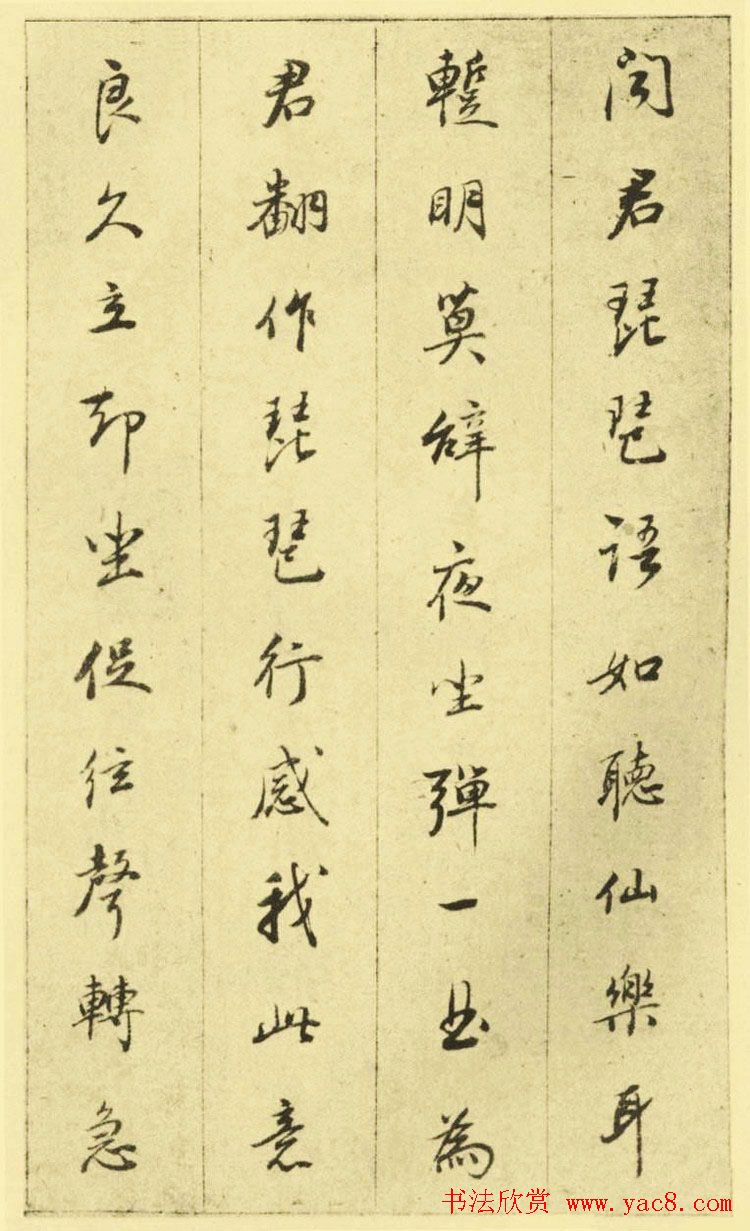 聞君琵琶語如聽仙樂耳
蹔明莫辭夜坐彈一曲為
君翻作琵琶行感我此意
良久立却坐促絃聲轉急
书法欣赏 www.yac8.com